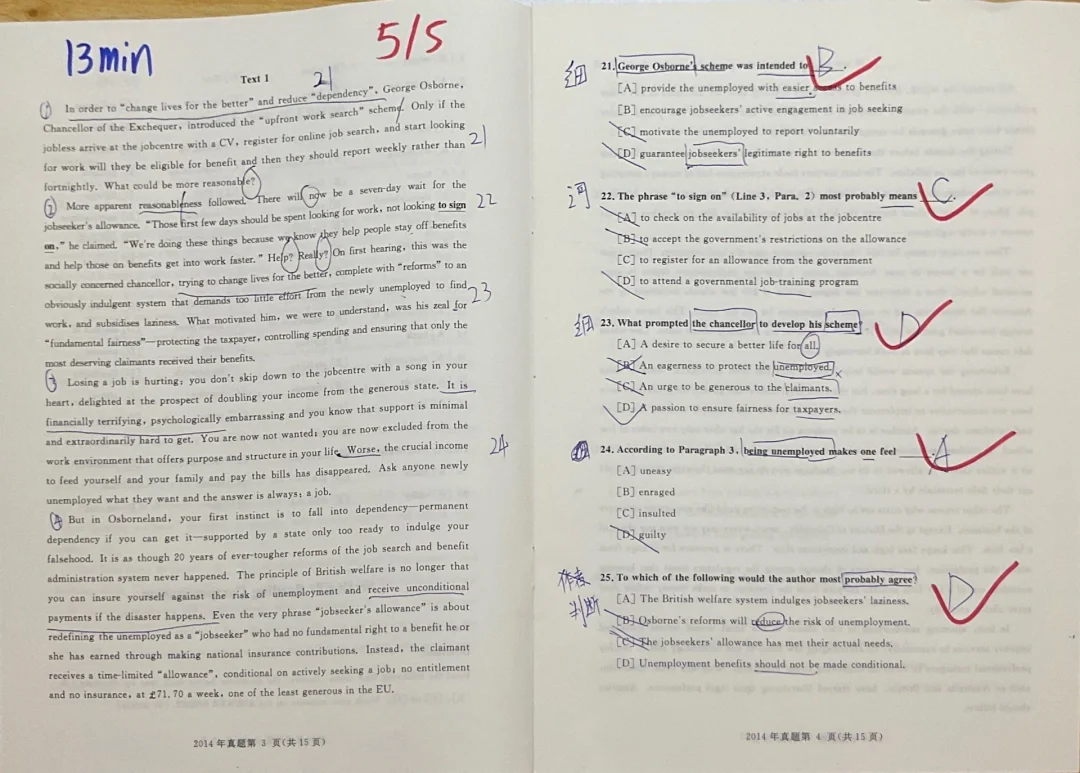 13min
5/5
Text 1
21
① In order to "change lives for the better" and reduce "dependency", George Osborne,
Chancellor of the Exchequer, introduced the "upfront work search" scheme. Only if the
jobless arrive at the jobcentre with a CV, register for online job search, and start looking
for work will they be eligible for benefit and then they should report weekly rather than
21
fortnightly. What could be more reasonable?
② More apparent reasonableness followed. There will now be a seven-day wait for the
jobseeker's allowance. "Those first few days should be spent looking for work, not looking to sign
22
on," he claimed. "We're doing these things because we know they help people stay off benefits
and help those on benefits get into work faster." Help? Really? On first hearing, this was the
socially concerned chancellor, trying to change lives for the better, complete with "reforms" to an
obviously indulgent system that demands too little effort from the newly unemployed to find
23
work, and subsidises laziness. What motivated him, we were to understand, was his zeal for
"fundamental fairness"—protecting the taxpayer, controlling spending and ensuring that only the
most deserving claimants received their benefits.
③ Losing a job is hurting: you don't skip down to the jobcentre with a song in your
heart, delighted at the prospect of doubling your income from the generous state. It is
financially terrifying, psychologically embarrassing and you know that support is minimal
and extraordinarily hard to get. You are now not wanted; you are now excluded from the
work environment that offers purpose and structure in your life. Worse, the crucial income
24
to feed yourself and your family and pay the bills has disappeared. Ask anyone newly
unemployed what they want and the answer is always: a job.
④ But in Osborneland, your first instinct is to fall into dependency—permanent
dependency if you can get it—supported by a state only too ready to indulge your
falsehood. It is as though 20 years of ever-tougher reforms of the job search and benefit
administration system never happened. The principle of British welfare is no longer that
you can insure yourself against the risk of unemployment and receive unconditional
payments if the disaster happens. Even the very phrase "jobseeker's allowance" is about
redefining the unemployed as a "jobseeker" who had no fundamental right to a benefit he or
she has earned through making national insurance contributions. Instead, the claimant
receives a time-limited "allowance", conditional on actively seeking a job; no entitlement
and no insurance, at £71.70 a week, one of the least generous in the EU.
2014 年真题第 3 页(共 15 页)
细
21. George Osborne's scheme was intended to B
[A] provide the unemployed with easier access to benefits
[B] encourage jobseekers' active engagement in job seeking
[C] motivate the unemployed to report voluntarily
[D] guarantee jobseekers' legitimate right to benefits
词
22. The phrase "to sign on" (Line 3, Para. 2) most probably means C.
[A] to check on the availability of jobs at the jobcentre
[B] to accept the government's restrictions on the allowance
[C] to register for an allowance from the government
[D] to attend a governmental job-training program
细
23. What prompted the chancellor to develop his scheme? D
[A] A desire to secure a better life for all.
[B] An eagerness to protect the unemployed.
[C] An urge to be generous to the claimants.
[D] A passion to ensure fairness for taxpayers.
24. According to Paragraph 3, being unemployed makes one feel A
[A] uneasy
[B] enraged
[C] insulted
[D] guilty
判断
25. To which of the following would the author most probably agree? D
[A] The British welfare system indulges jobseekers' laziness.
[B] Osborne's reforms will reduce the risk of unemployment.
[C] The jobseekers' allowance has met their actual needs.
[D] Unemployment benefits should not be made conditional.
2014 年真题第 4 页(共 15 页)